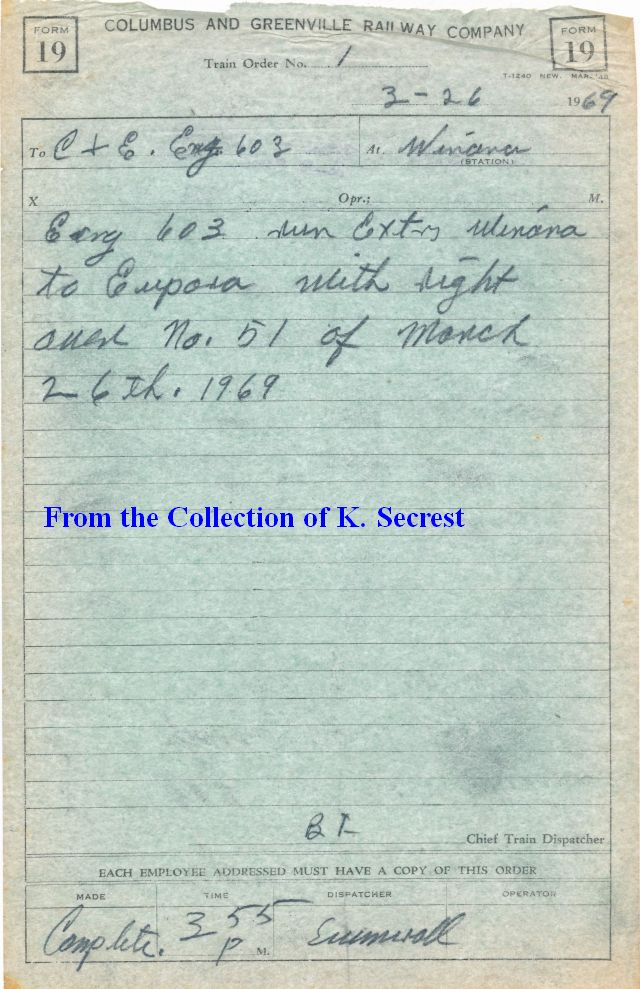 FORM 19
COLUMBUS AND GREENVILLE RAILWAY COMPANY
FORM 19
Train Order No. 1
T-1240 NEW. MAR. '48
3-26 1969
To C + E. Eng. 603 At Winona
(STATION)
X Opr.; M.
Eng 603 run Extra Winona
to Eupora with right
over No. 51 of March
26th. 1969
From the Collection of K. Secrest
Chief Train Dispatcher
EACH EMPLOYEE ADDRESSED MUST HAVE A COPY OF THIS ORDER
MADE TIME DISPATCHER OPERATOR
Complete. 355 P M.